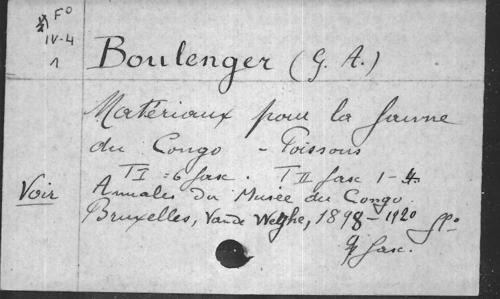 F°
IV-4
1
Boulenger (G. A.)
Matériaux pour la faune
du Congo - Poissons
T I = 6 fasc. T II fasc 1-4.
Voir Annales du Musée du Congo
Bruxelles, Vande Weghe, 1898-1920 f°
fasc.